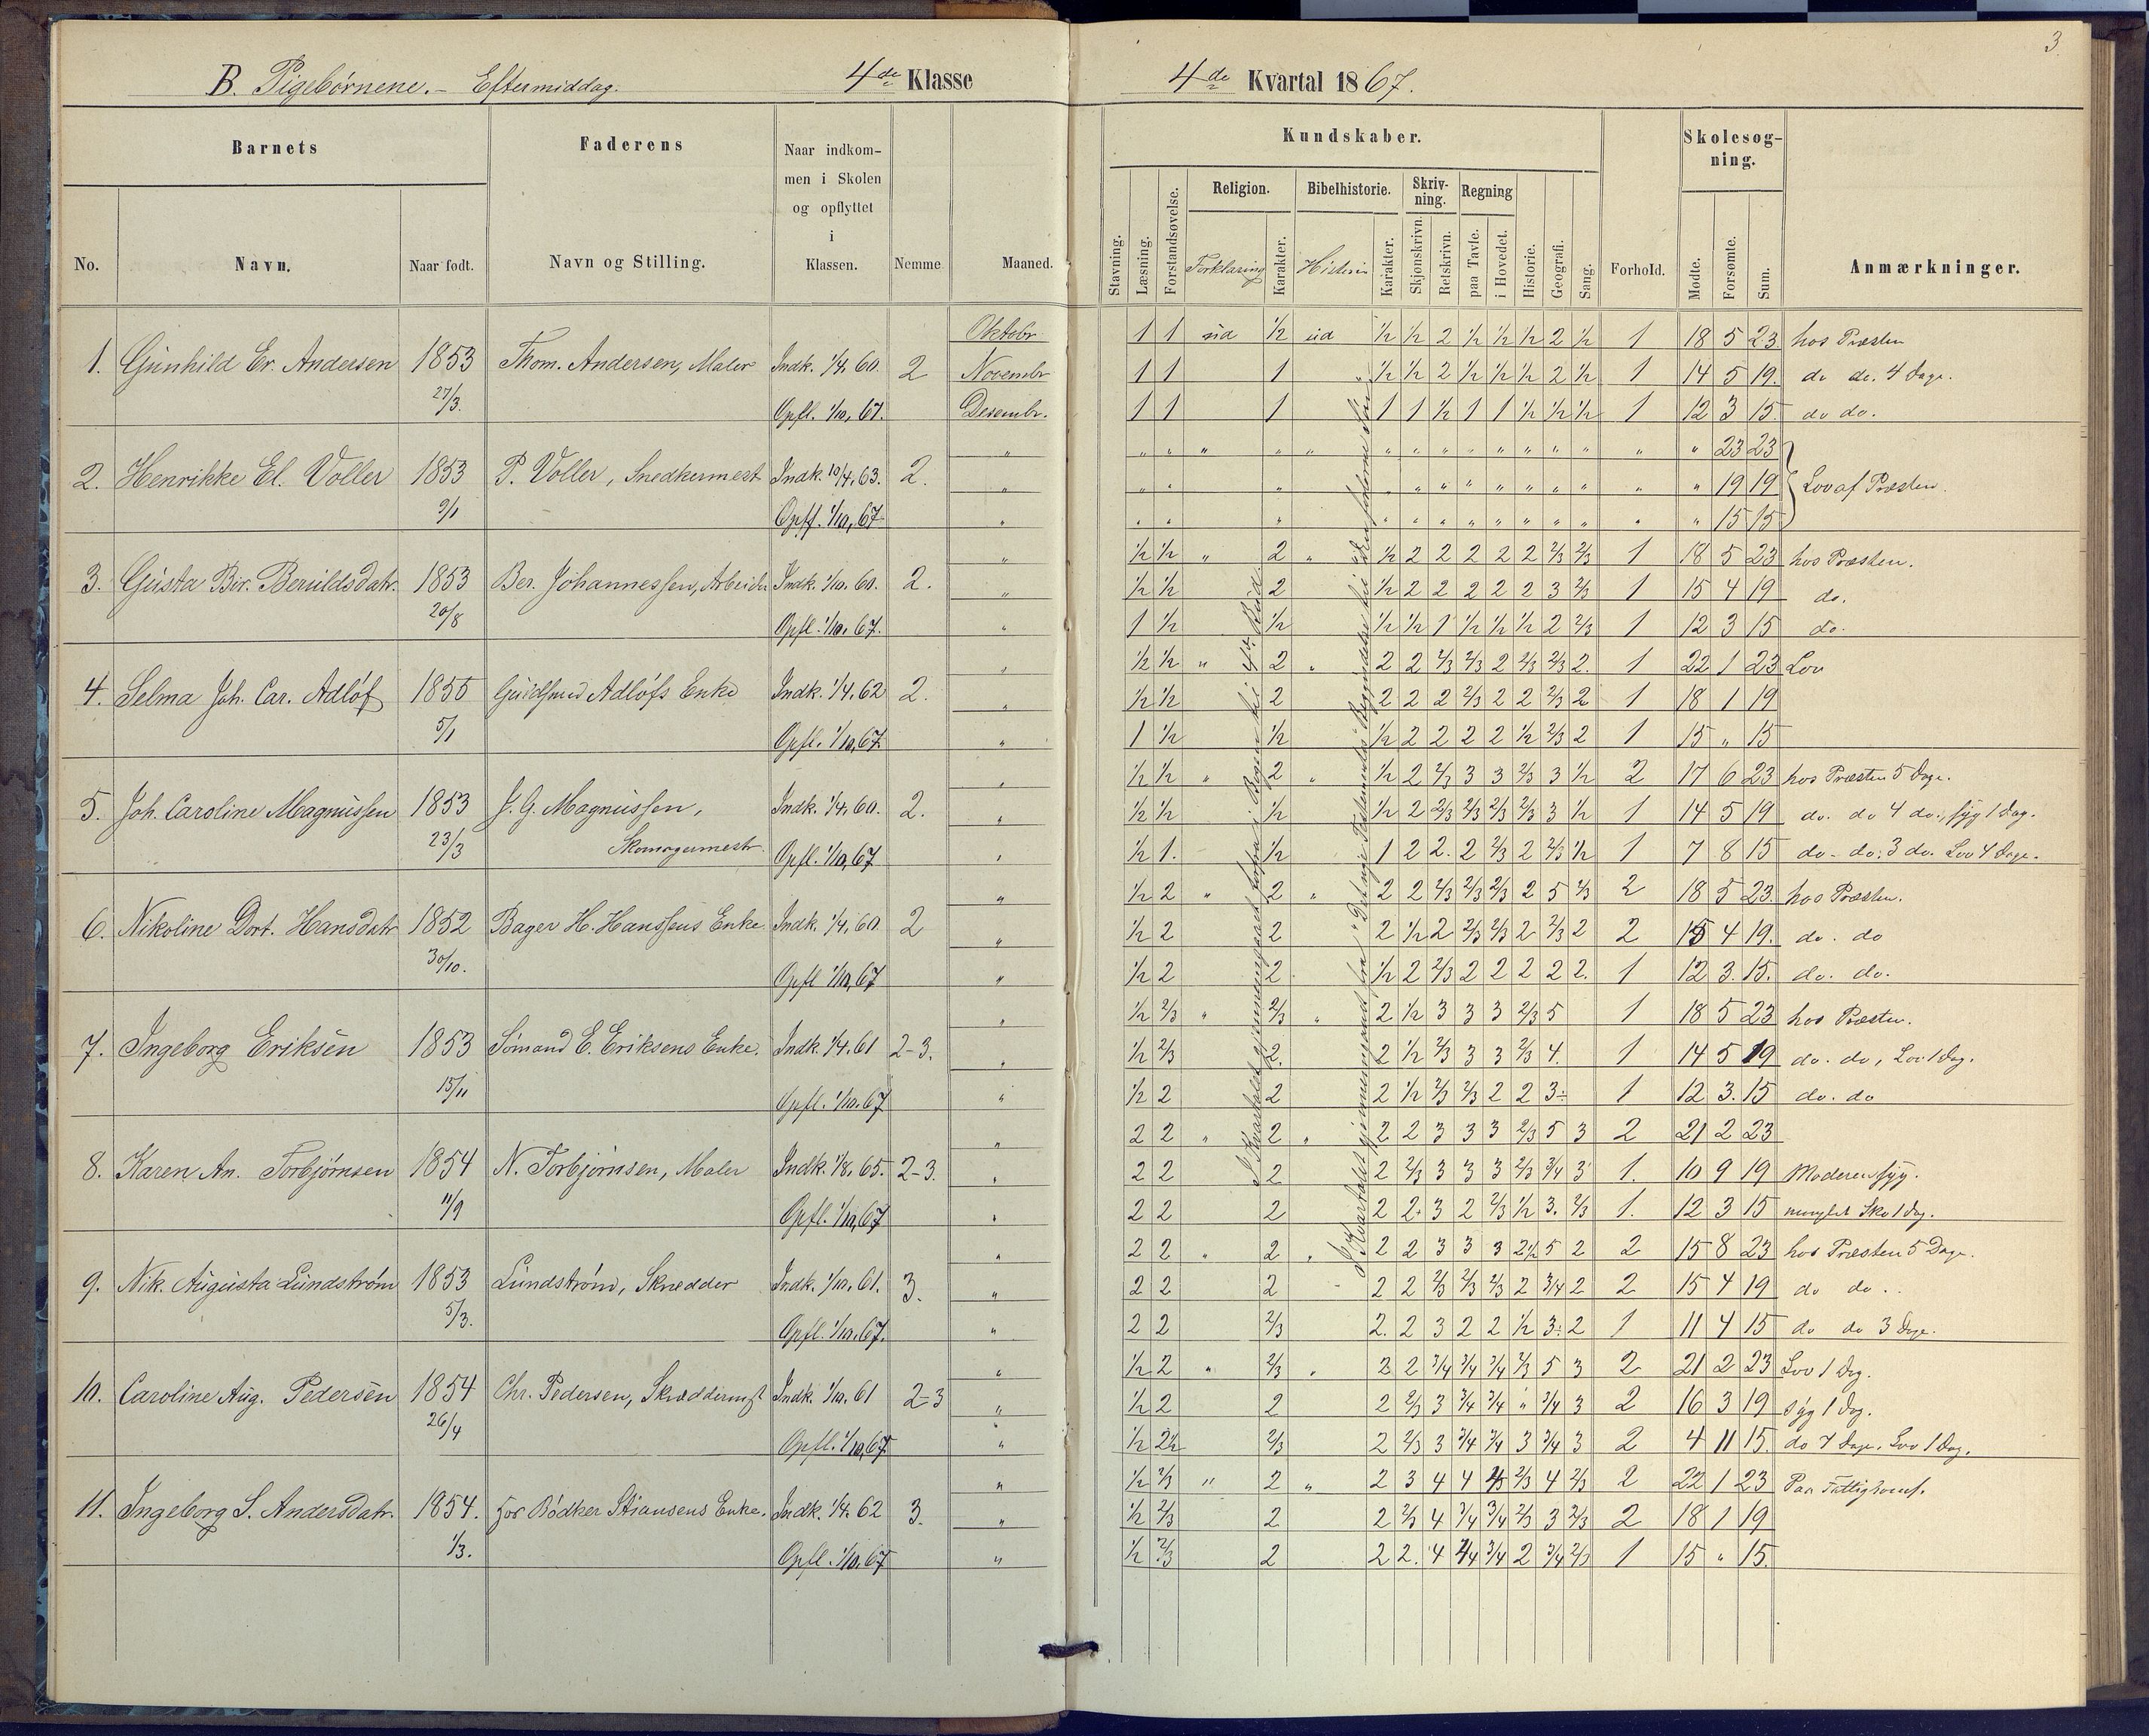 3.
B. Pigebørnene. - Eftermiddag. 4de Klasse
4de Kvartal 1867.
Barnets
Faderens
Naar indkom-
men i Skolen
og opflyttet
i
Klassen.
No.
Navn.
Naar født.
Navn og Stilling.
Nemme
Maaned.
Kundskaber.
Stavning.
Læsning.
Forstandsøvelse.
Religion.
Forklaring
Karakter.
Bibelhistorie.
Historie
Karakter.
Skriv-
ning.
Skjønskrivn.
Retskrivn.
Regning
paa Tavle.
i Hovedet.
Historie.
Geografi.
Sang.
Forhold.
Skolesøg-
ning.
Mødte.
Forsømte.
Sum.
Anmærkninger.
1. Gunhild Er. Andersen 1853 27/3. Thom. Andersen, Maler Indk. 1/4. 60. Opfl. 1/10. 67. 2
Oktobr 1 1 ud 1/2 ud 1/2 1/2 2 1/2 1/2 1/2 2 1/2 1 18 5 23 hos Præsten
Novembr 1 1 1 1/2 1/2 2 1/2 1/2 1/2 2 1/2 1 14 5 19. do do. 4 Dage.
Desembr. 1 1 1 1 1 1/2 1 1 1/2 1/2 1/2 1 12 3 15. do do.
2. Henrikke El. Voller 1853 9/1 P. Voller, Snedkermest Indk. 10/4. 63. Opfl. 1/10. 67 2.
" 23 23
" 19 19 Lov af Præsten.
" 15 15
3. Gusta Ber. Beruldsdatr. 1853 20/8 Ber. Johannessen, Arbeider Indk. 1/10. 60. Opfl. 1/10. 67. 2.
1/2 1/2 " 2 " 1/2 2 2 2 2 2 2/3 2/3 1 18 5 23 hos Præsten.
1/2 1/2 2 1/2 2 2 2 2 2 3 2/3 1 15 4 19 do.
1 1/2 1/2 1/2 1/2 1 1/2 1/2 1/2 2 2/3 1 12 3 15 do.
4. Selma Joh. Car. Adløf 1855 5/1 Adløfs Enke Indk. 1/4. 62 Opfl. 1/10. 67. 2.
1/2 1/2 " 2 " 2 2 2/3 2/3 2 2/3 2/3 2. 1 22 1 23 Lov
1/2 1/2 2 2 2 2 2/3 2 2 2/3 2 1 18 1 19
1 1/2 1/2 1/2 2 2 2 2 1/2 2/3 2 1 15 " 15
5. Joh. Caroline Magnussen 1853 23/3 J. G. Magnussen, Indk. 1/4. 60. 2.
Skomagermestr. Opfl. 1/10. 67
1/2 1/2 " 2 " 1/2 2 2/3 3 3 2/3 3 1/2 2 17 6 23 hos Præsten 5 Dage.
1/2 1/2 1/2 1/2 2 2/3 2/3 2/3 2/3 3 1/2 1 14 5 19 do. do 4 do., syg 1 Dag.
1/2 1. 1/2 1 2 2. 2 2/3 2 2/3 1/2 1 7 8 15 do - do. 3 do. Lov 4 Dage.
6. Nikoline Dort. Hansdatr 1852 30/10. Bager H. Hanssens Enke Indk. 1/4. 60. Opfl 1/10. 67 2
1/2 2 " 2 " 2 2 2/3 2/3 2/3 2 5 2/3 2 18 5 23. hos Præsten.
1/2 2 2 2 1/2 2 2/3 2/3 2 2/3 2 2 15 4 19. do. do
1/2 2 2 1/2 2 2/3 2 2 2 2 2. 1 12 3. 15. do. do.
7. Ingeborg Eriksen 1853 15/11 Sømand E. Eriksens Enke. Indk. 1/4. 61 Opfl. 1/10. 67 2-3.
1/2 2/3 " 2/3 " 2 1/2 3 3 3 2/3 5 1 18 5 23 hos Præsten.
1/2 2/3 2. 2 1/2 2/3 3 3 2/3 4. 1 14 5 19 do. do, Lov 1 Dag.
1/2 2 2 2 1/2 2/3 2/3 2 2 3 1 12 3. 15 do. do
8. Karen An. Torbjørnsen 1854 11/9 N. Torbjørnsen, Maler Indk. 1/8. 65. Opfl. 1/10. 67 2-3.
2 2 " 2 " 2 2 3 3 3 2/3 5 3 2 21 2 23
2 2 2 2 2/3 3 3 3 2/3 3/4 3 1. 10 9 19 Moderen syg.
2 2 2 2 2 3 2 2/3 1/2 3. 2/3 1. 12 3 15 manglet Sko 1 Dag.
9. Nik. Augusta Lundstrøm 1853 5/3. Lundstrøm, Skredder Indk. 1/10. 61. Opfl. 1/10. 67. 3.
2 2 " 2 " 2 2 3 3 3 2 1/2 5 2 2 15 8 23 hos Præsten 5 Dage.
2 2 2 2 2 2/3 2/3 2/3 2 3/4 2 2 15 4 19 do do.
2 2 2/3 2. 2 3 2 2 1/2 3 2 1 11 4 15 do do 3 Dage.
10. Caroline Aug. Pedersen 1854 26/4 Chr. Pedersen, Skræddermst Indk. 1/10. 61 Opfl. 1/10. 67 2-3
1/2 2 " 2/3 " 2 2 3/4 3/4 3/4 2/3 5 3 2 21 2 23 Lov 1 Dag.
1/2 2 2 2 2/3 3 3/4 3/4 " 3/4 3 2 16 3 19 syg 1 Dag.
1/2 2 1/2 2/3 2 2/3 3 3/4 3/4 3 3/4 3 2 4 11 15. do 7 Dage, Lov 1 Dag.
11. Ingeborg S. Andersdatr. 1854. 1/3. hos Bødker Stiansens Enke. Indk. 1/4. 62 Opfl. 1/10. 67 3.
1/2 2/3 " 2 " 2 3 4 4 2/3 4 2/3 2 22 1 23 Paa Fattighuset.
1/2 2/3 2 2 2/3 4 3/4 3/4 2/3 3 2/3 2 18 1 19
1/2 2/3 2 2 2. 4 3/4 2 3/4 2/3 1 15 " 15.
I Kvartalet gjennemgaaet
I Kvartalet gjennemgaaet fra "Det nye Testamentes Begyndelse til